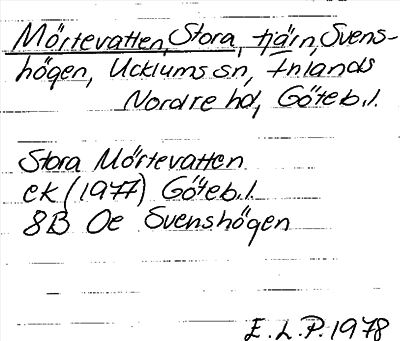 Mörtevatten, Stora, tjärn, Svens-
högen, Ucklums sn, Inlands
Nordre hd, Göteb.l.
Stora Mörtevatten
ek (1977) Göteb.l.
8B Oe Svenshögen
E.L.P. 1978